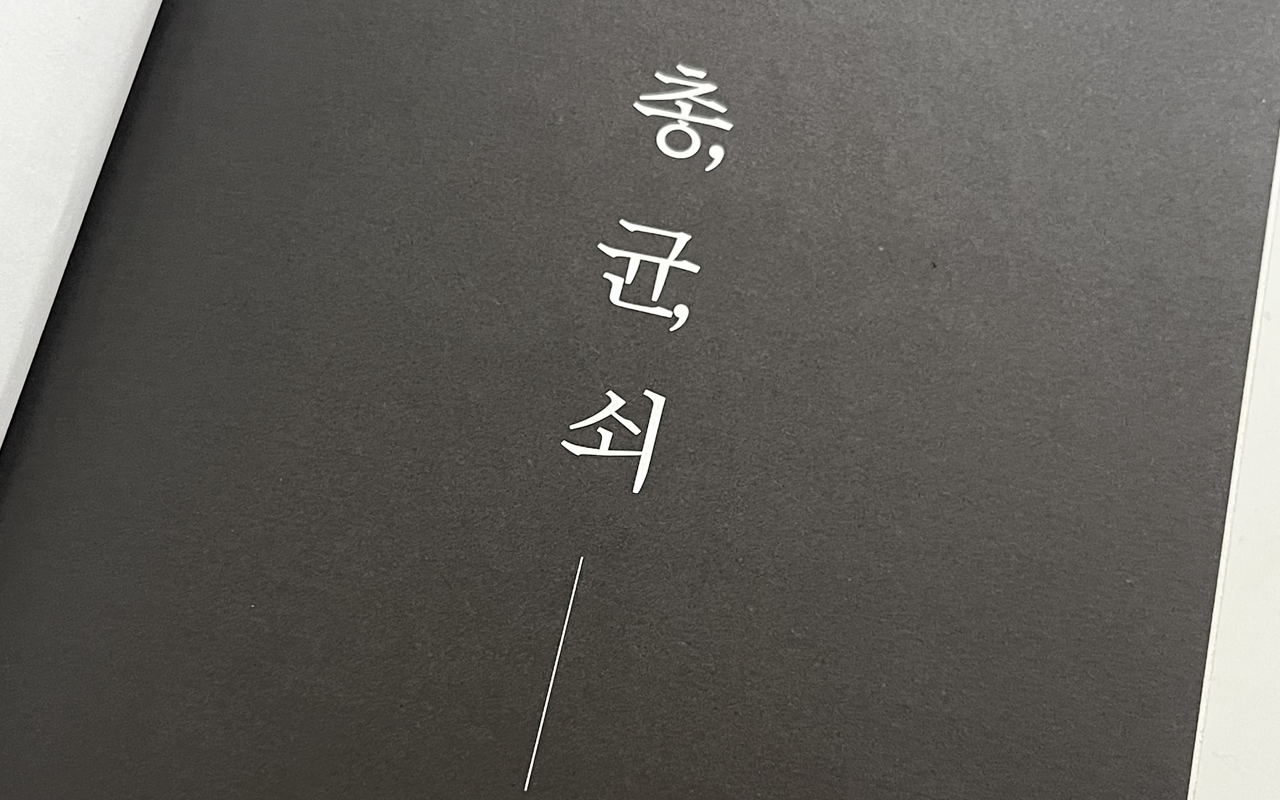 총,
균,
쇠